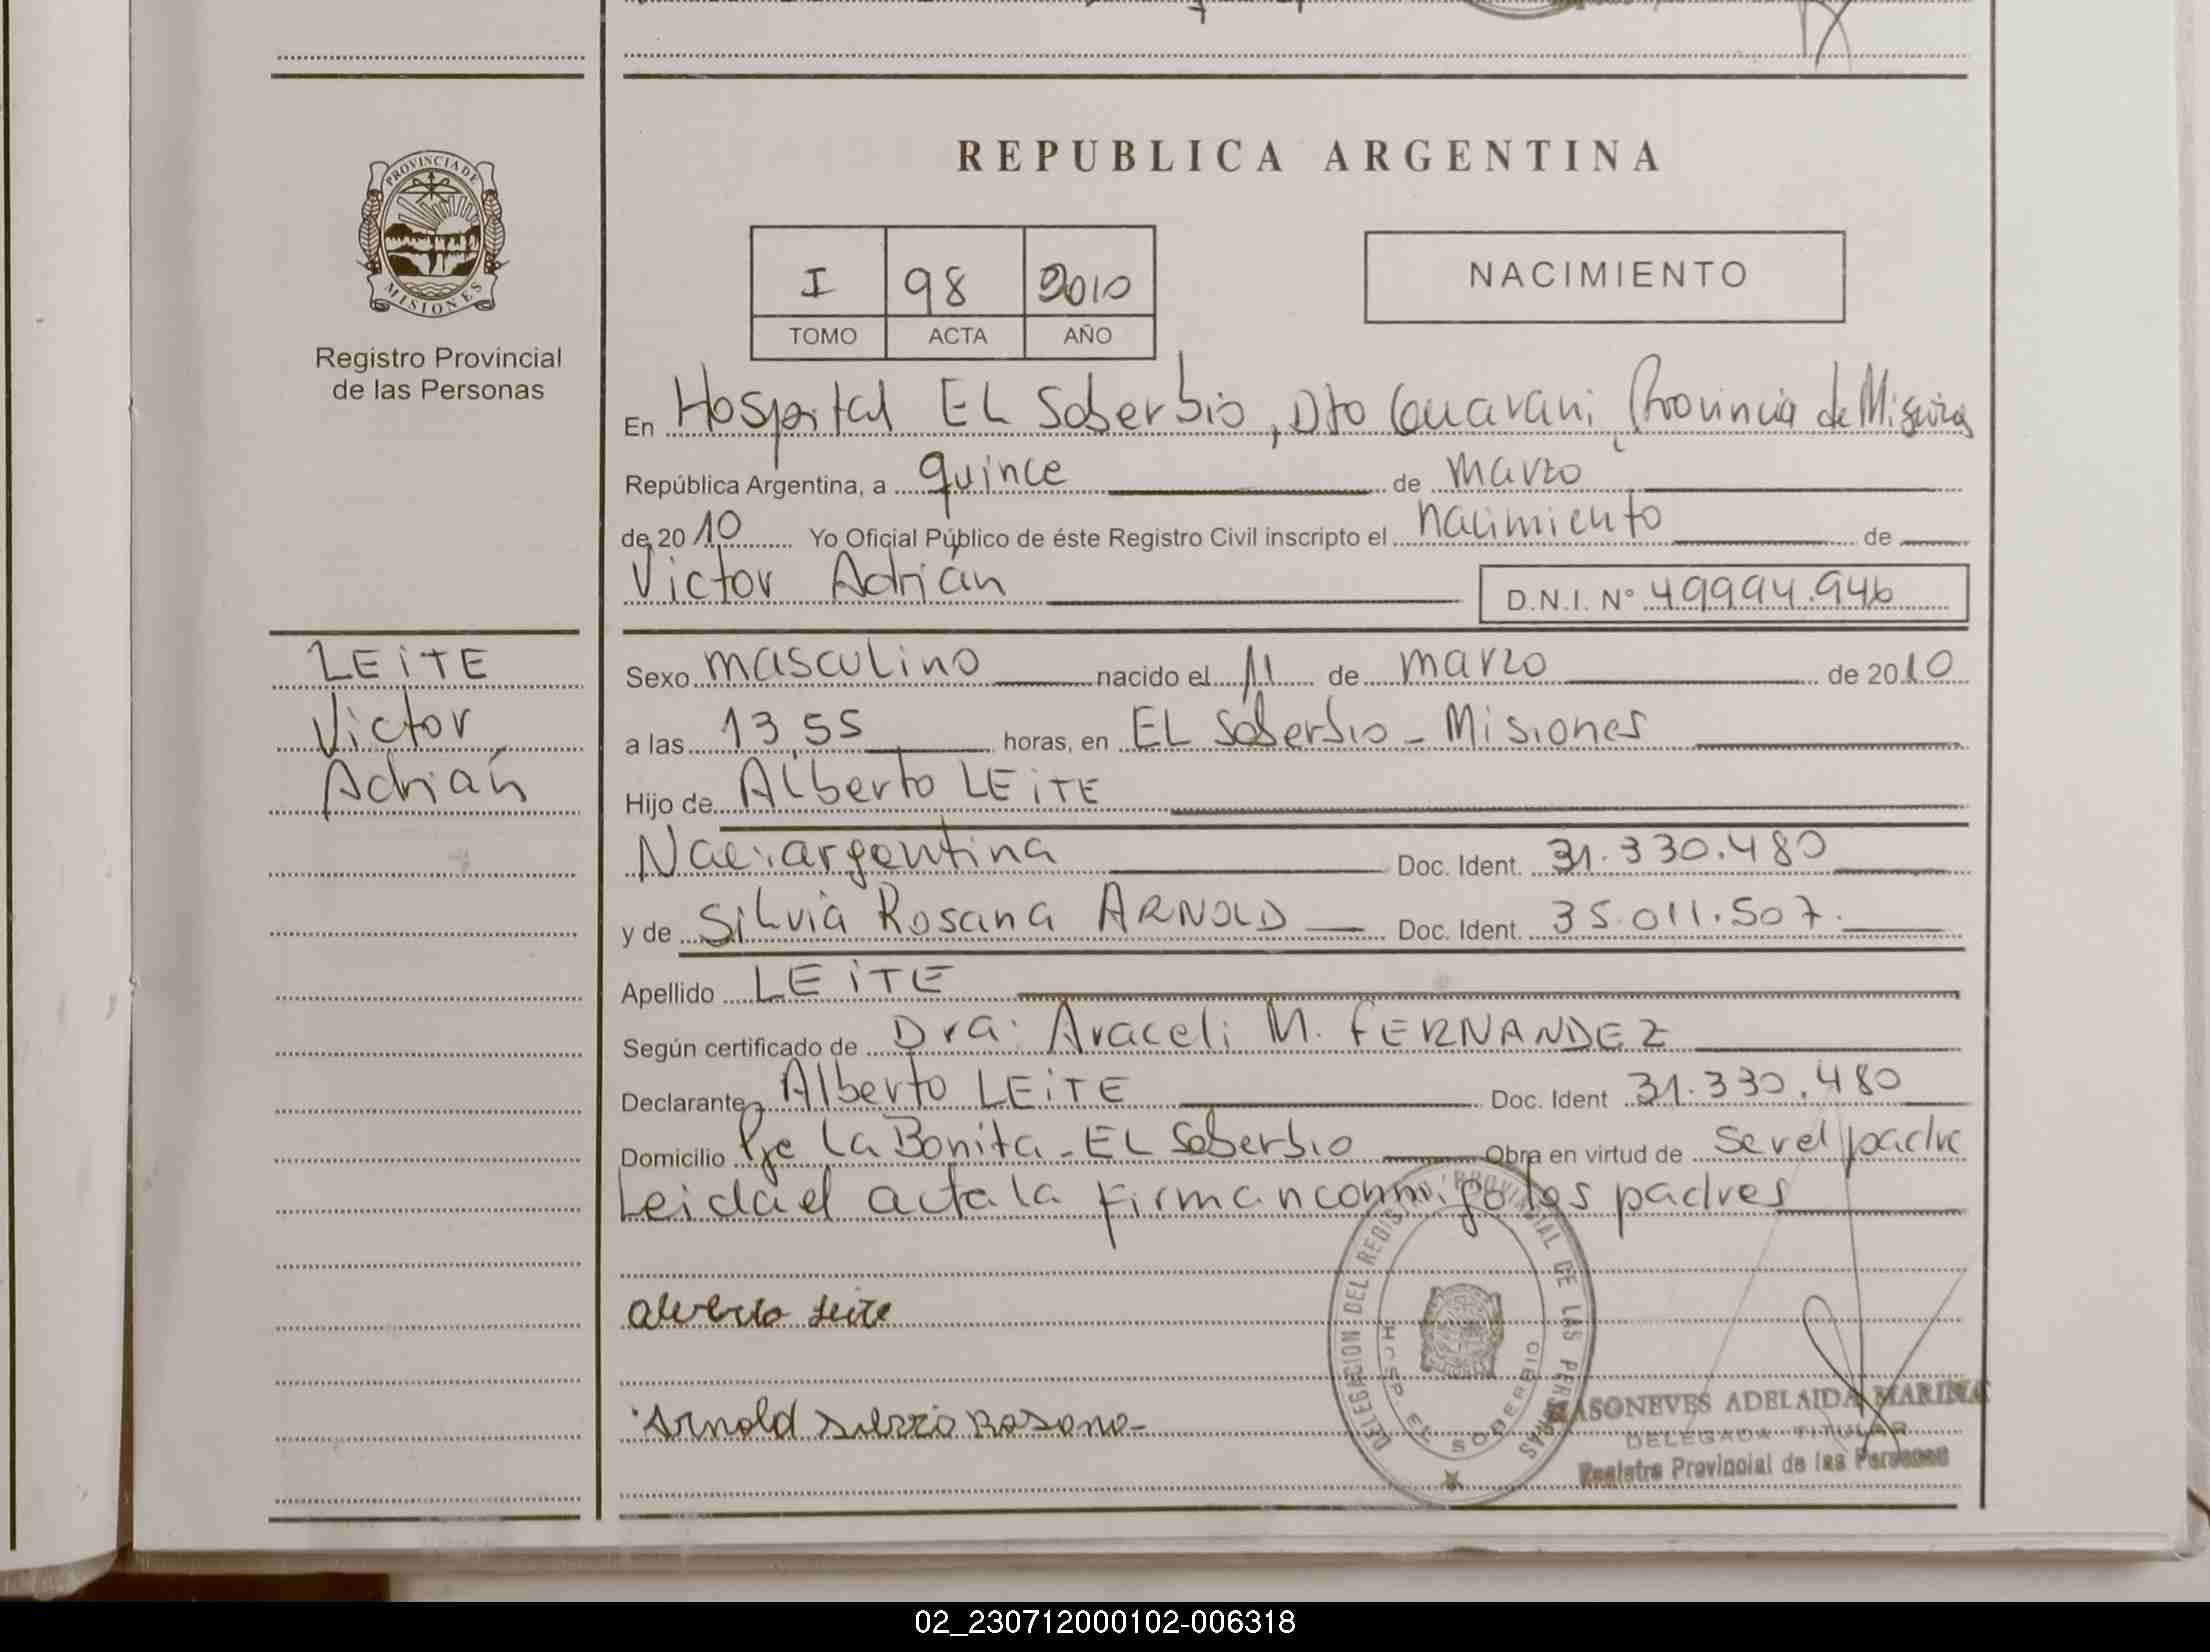 REPUBLICA ARGENTINA
PROVINCIA DE
MISIONES
Registro Provincial
de las Personas
I 98 2010
TOMO ACTA AÑO
NACIMIENTO
En Hospital EL Soberbio, Dto Guarani, Provincia de Misiones
República Argentina, a quince de marzo
de 2010 Yo Oficial Público de éste Registro Civil inscripto el nacimiento de
Victor Adrián D.N.I. N° 49994.946
LEiTE
Victor
Adrián
Sexo masculino nacido el 11 de marzo de 2010
a las 13,55 horas, en EL Soberbio - Misiones
Hijo de Alberto LEiTE
Nac: argentina Doc. Ident. 31.330.480
y de Silvia Rosana ARNOLD Doc. Ident. 35.011.507.
Apellido LEiTE
Según certificado de Dra: Araceli M. FERNANDEZ
Declarante Alberto LEiTE Doc. Ident 31.330.480
Domicilio Pje La Bonita - EL Soberbio Obra en virtud de ser el padre
Leida el acta la firman conmigo los padres
DELEGACION DEL REGISTRO PROVINCIAL DE LAS PERSONAS
HOSP EL SOBERBIO
Leite
Arnold Rosana
MASONEVES ADELAIDA MARINA
DELEGADA TITULAR
Registro Provincial de las Personas
02_230712000102-006318